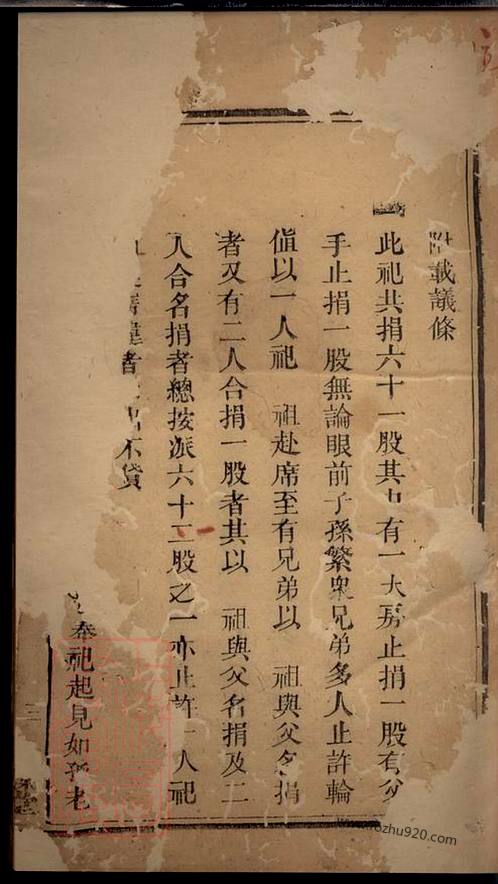 附載議條
一此祀共捐六十一股其中有一大房止捐一股有父
手止捐一股無論眼前子孫繁衆兄弟多人止許輪
值以一人祀 祖赴席至有兄弟以 祖與父名捐
者又有二人合捐一股者其以 祖與父名捐及二
人合名捐者總按派六十一股之一亦止許一人祀
違者 不貸
奉祀起見如孤老
ozhu920.com